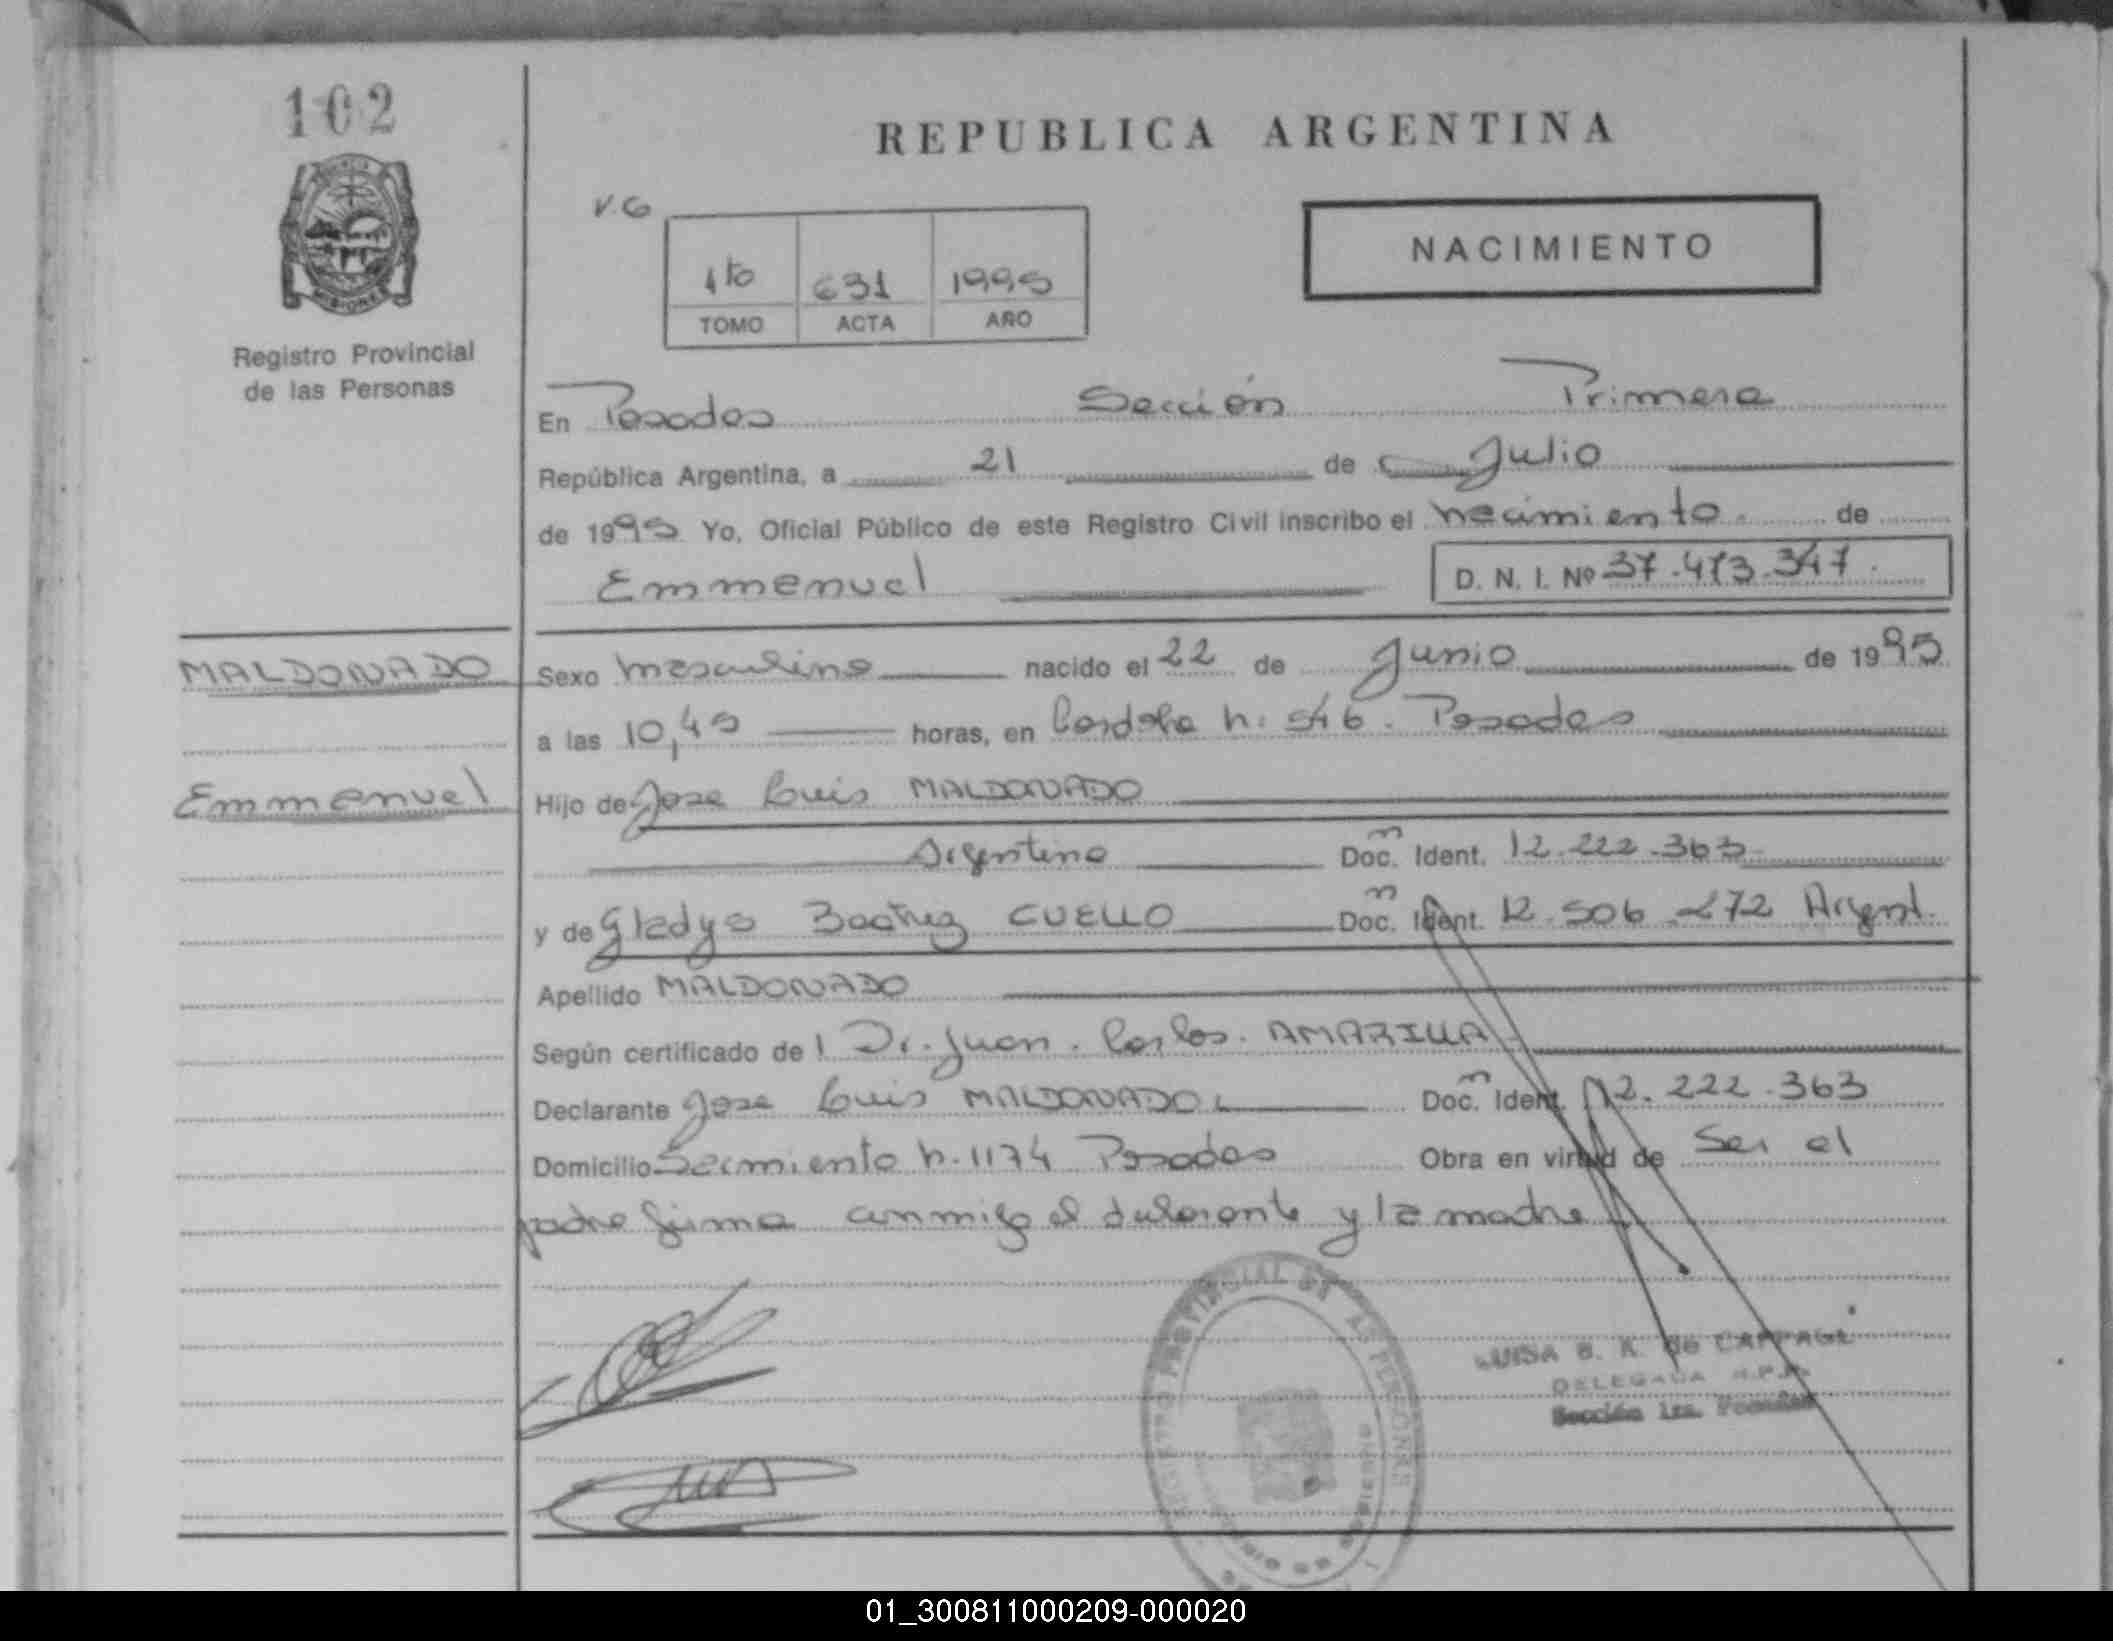 102
REPUBLICA ARGENTINA
V.G
NACIMIENTO
4to 631 1995
TOMO ACTA AÑO
MISIONES
Registro Provincial
de las Personas
En Posadas Sección Primera
República Argentina, a 21 de Julio
de 1995 Yo, Oficial Público de este Registro Civil inscribo el nacimiento de
Emmanuel D. N. I. Nº 37.473.347.
MALDONADO
Sexo masculino nacido el 22 de Junio de 1995
a las 10,45 horas, en Cordoba n: 546. Posadas
Emmanuel
Hijo de Jose Luis MALDONADO
Argentino Doc. Ident. 12.222.363
y de Gladys Beatriz CUELLO Doc. Ident. 12.506.272 Argent.
Apellido MALDONADO
Según certificado de l Dr. Juan. Carlos. AMARILLA
Declarante Jose Luis MALDONADO Doc. Ident. 12.222.363
Domicilio Sarmiento n. 1174 Posadas Obra en virtud de Ser el
padre firma conmigo el declarante y la madre
REGISTRO PROVINCIAL DE LAS PERSONAS
LUISA B. K. de CAPPAGE
DELEGADA R.P.P.
Sección 1ra. Posadas
01_300811000209-000020